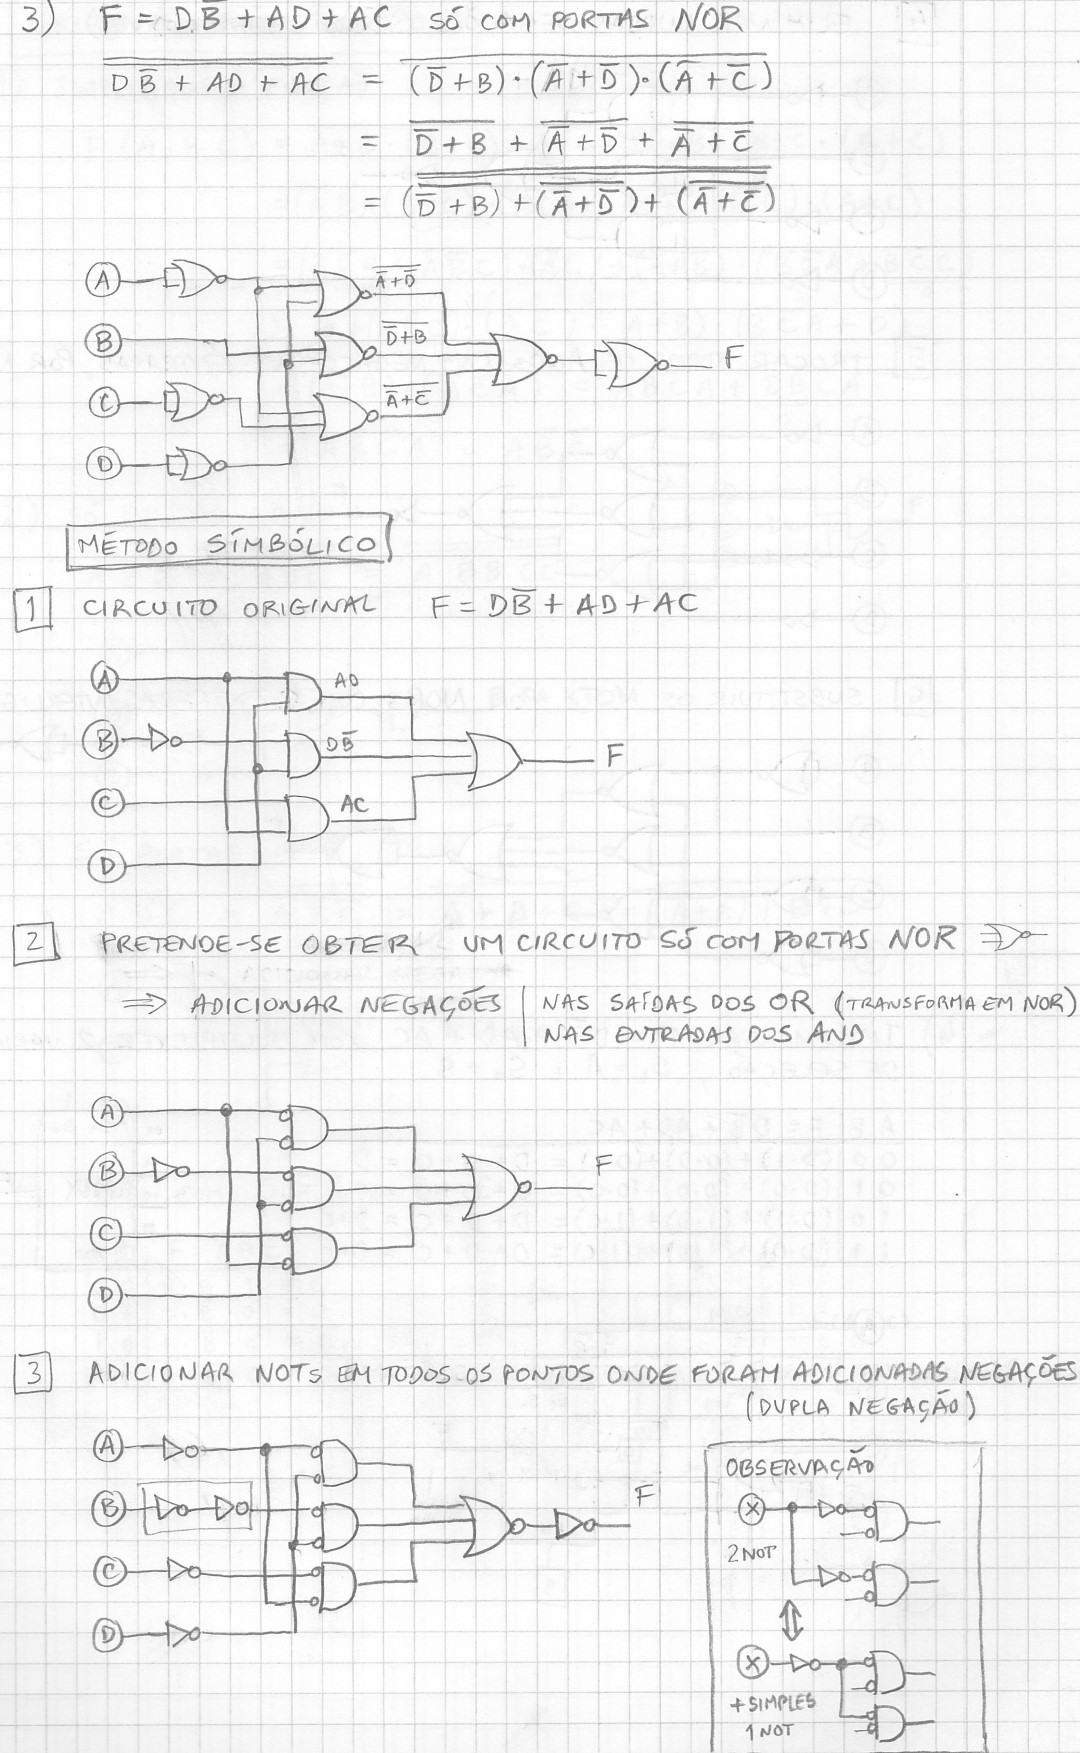 3) F = DB̅ + AD + AC SÓ COM PORTAS NOR
D B̅ + AD + AC = (D̅ + B) · (A̅ + D̅) · (A̅ + C̅)
= D̅ + B + A̅ + D̅ + A̅ + C̅
= (D̅ + B) + (A̅ + D̅) + (A̅ + C̅)
A
A̅+D̅
B
D̅+B
F
C
A̅+C̅
D
MÉTODO SIMBÓLICO
1 CIRCUITO ORIGINAL F = DB̅ + AD + AC
A
AD
B
DB̅
F
C
AC
D
2 PRETENDE-SE OBTER UM CIRCUITO SÓ COM PORTAS NOR
⇒ ADICIONAR NEGAÇÕES | NAS SAÍDAS DOS OR (TRANSFORMA EM NOR)
NAS ENTRADAS DOS AND
A
B
F
C
D
3 ADICIONAR NOTs EM TODOS OS PONTOS ONDE FORAM ADICIONADAS NEGAÇÕES
(DUPLA NEGAÇÃO)
A
B
F
C
D
OBSERVAÇÃO
X
2 NOT
⇕
X
+ SIMPLES
1 NOT